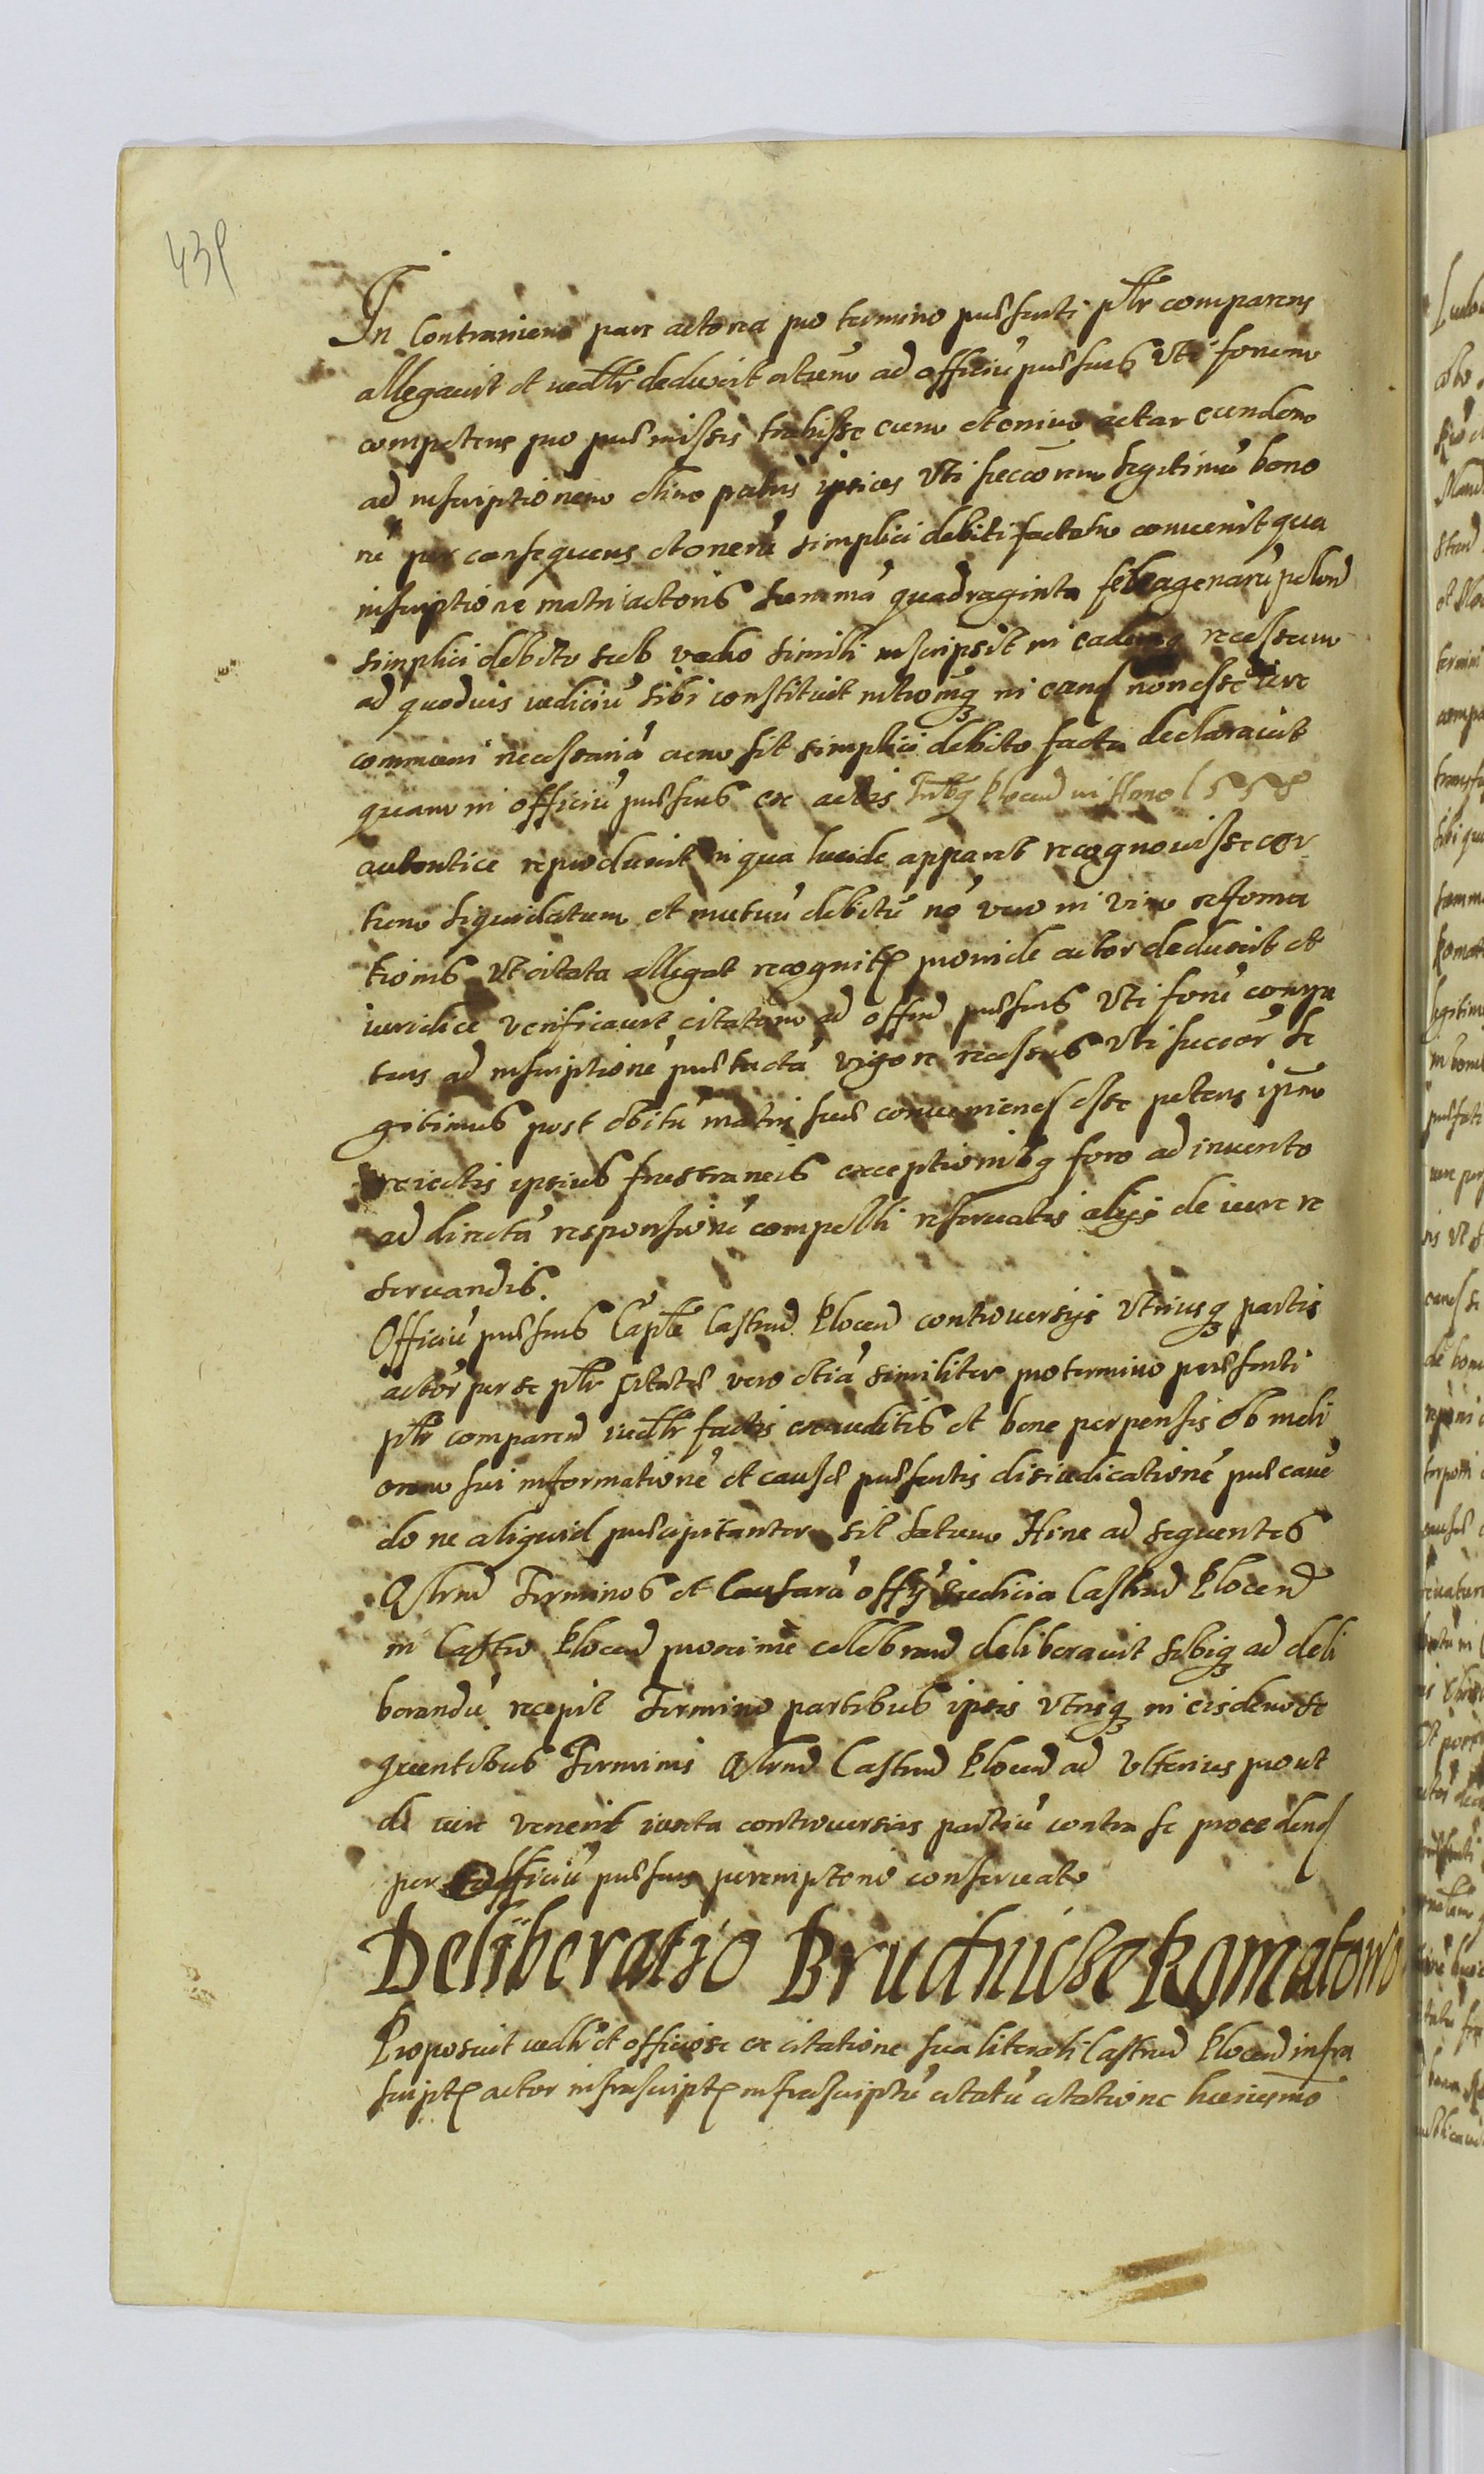 439
In Contrarium pars actorea pro termino pręsenti pltr comparens
allegavit et iudltr deduxit citatum ad officiũ pręsens Uti forum
competens pro pręmissis trahisse cum etenim actor eundem
ad inscriptionem olim patris ipsius Uti succorem legitimũ bono
rũ per consequens et onerũ simplici debiti factam convenit qua
inscriptione matri actoris summã quadraginta sexagenarũ pecun
simplici debito sub vadio simili inscripsit in eademq recessum
ad quodvis iudiciũ sibi constituit intromq in eand non esse iure
communi necessariã cum sit simplici debito facta declaravit
quam in officiũ pręsens ex actis Plocen in Anno 1558
autentice reproduxit in qua lucide apparet recognovisse cer
tum liquidatum et mutuũ debitũ nõ vero in vim reforma
tionis Ut citatus allegat recognit proinde actor deduxit et
iuridice verificavit citatum ad offm pręsens Uti forũ compe
tens ad inscriptionẽ prętactã vigore recessus Uti succor le
gitimus post obitũ matris suę conveniend esse petens ipm
reiectis ipsius frustraneis exceptionibq foro ad invento
ad directã responsionẽ compelli reservatis alijs de iure re
servandis.
Officiũ pręsens Capitle Castren Plocen controversijs Utriusq partis
actor per se pltr Citatę vero etiã similiter pro termino pręsenti
pltr comparen iudltr factis exauditis et bene perpensis ob meli
orem sui informationẽ et causę pręsentis disiudicationẽ pręcavẽ
do ne aliquid pręcipitanter sit latum Hinc ad sequentes
Qstrnd Terminos et Causarũ offij Iudicia Castren Plocen
in Castro Plocen proxime celebrand deliberavit sibiq ad deli
berandũ recepit Termino partibus ipsis Utrisq in eisdem se
quentibus Terminis Qstrnd Castren Plocen ad Ulterius prout
de iure venerit iuxta controversias partiũ contra se procedend
per officiũ pręsens peremptorie conservato
Deliberatio Brudnicki Romatowo
Proposuit iudltr et officiose ex citatione sua literali Castren Plocen infra
script actor infrascript infrascriptũ citatũ citatione huiusmo